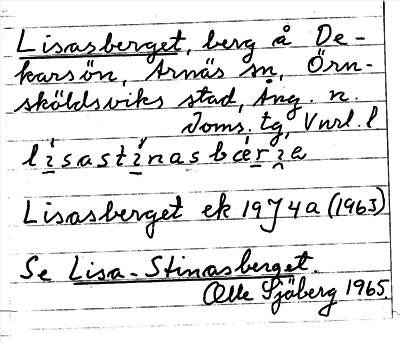 Lisasberget, berg å De-
karsön, Arnäs sn, Örn-
sköldsviks stad, Ång. n.
Doms. tg, Vnrl. l
lisastinasbærje
Lisasberget ek 19J4a (1963)
Se Lisa-Stinasberget.
Olle Sjöberg 1965.